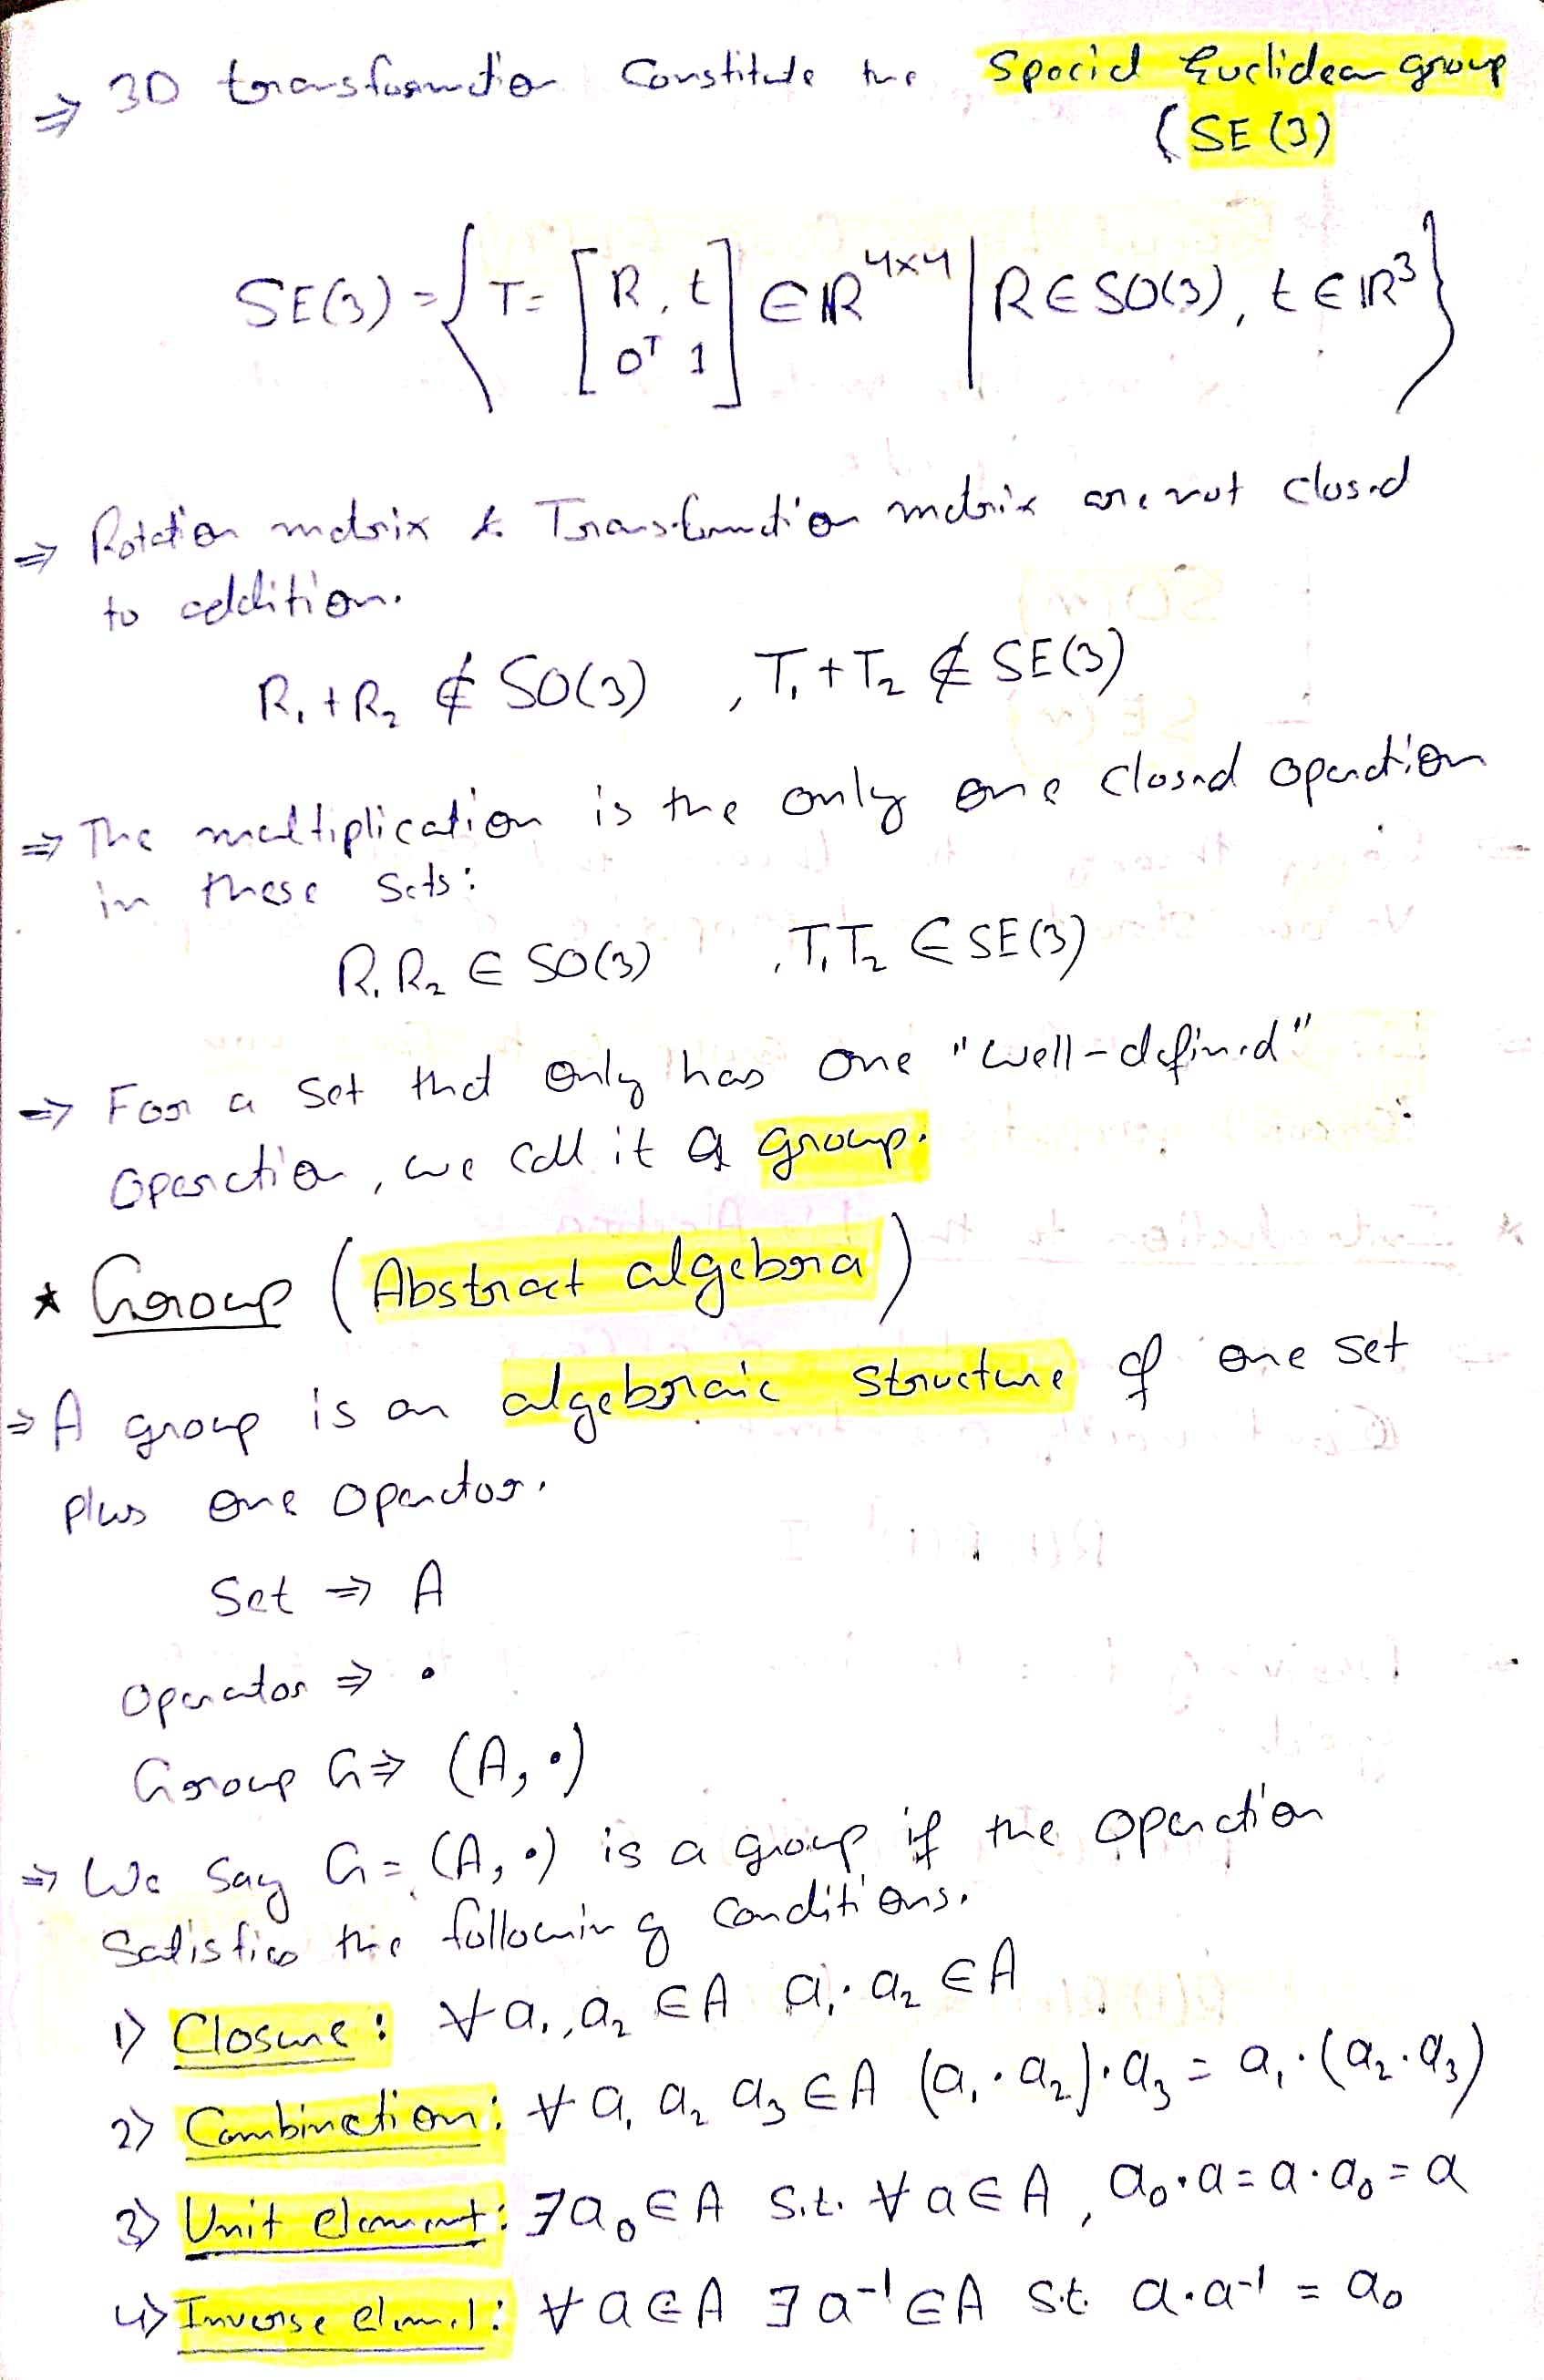 ⇒ 3D transformation Constitute the Special Euclidean group
(SE(3)
SE(3) = { T = [R, t; 0ᵀ 1] ∈ ℝ⁴ˣ⁴ | R ∈ SO(3), t ∈ ℝ³ }
⇒ Rotation matrix & Transformation matrix are not closed
to addition.
R₁ + R₂ ∉ SO(3) , T₁ + T₂ ∉ SE(3)
⇒ The multiplication is the only one closed operation
in these sets:
R₁ R₂ ∈ SO(3) , T₁ T₂ ∈ SE(3)
⇒ For a set that only has one "well-defined"
operation, we call it a group.
* Group (Abstract algebra)
⇒ A group is an algebraic structure of one set
plus one operator.
Set ⇒ A
Operator ⇒ •
Group G ⇒ (A, •)
⇒ We say G = (A, •) is a group if the operation
Satisfies the following conditions.
1) Closure: ∀ a₁, a₂ ∈ A a₁ · a₂ ∈ A
2) Combination: ∀ a₁ a₂ a₃ ∈ A (a₁ · a₂) · a₃ = a₁ · (a₂ · a₃)
3) Unit element: ∃ a₀ ∈ A s.t. ∀ a ∈ A, a₀ · a = a · a₀ = a
4) Inverse element: ∀ a ∈ A ∃ a⁻¹ ∈ A s.t. a · a⁻¹ = a₀